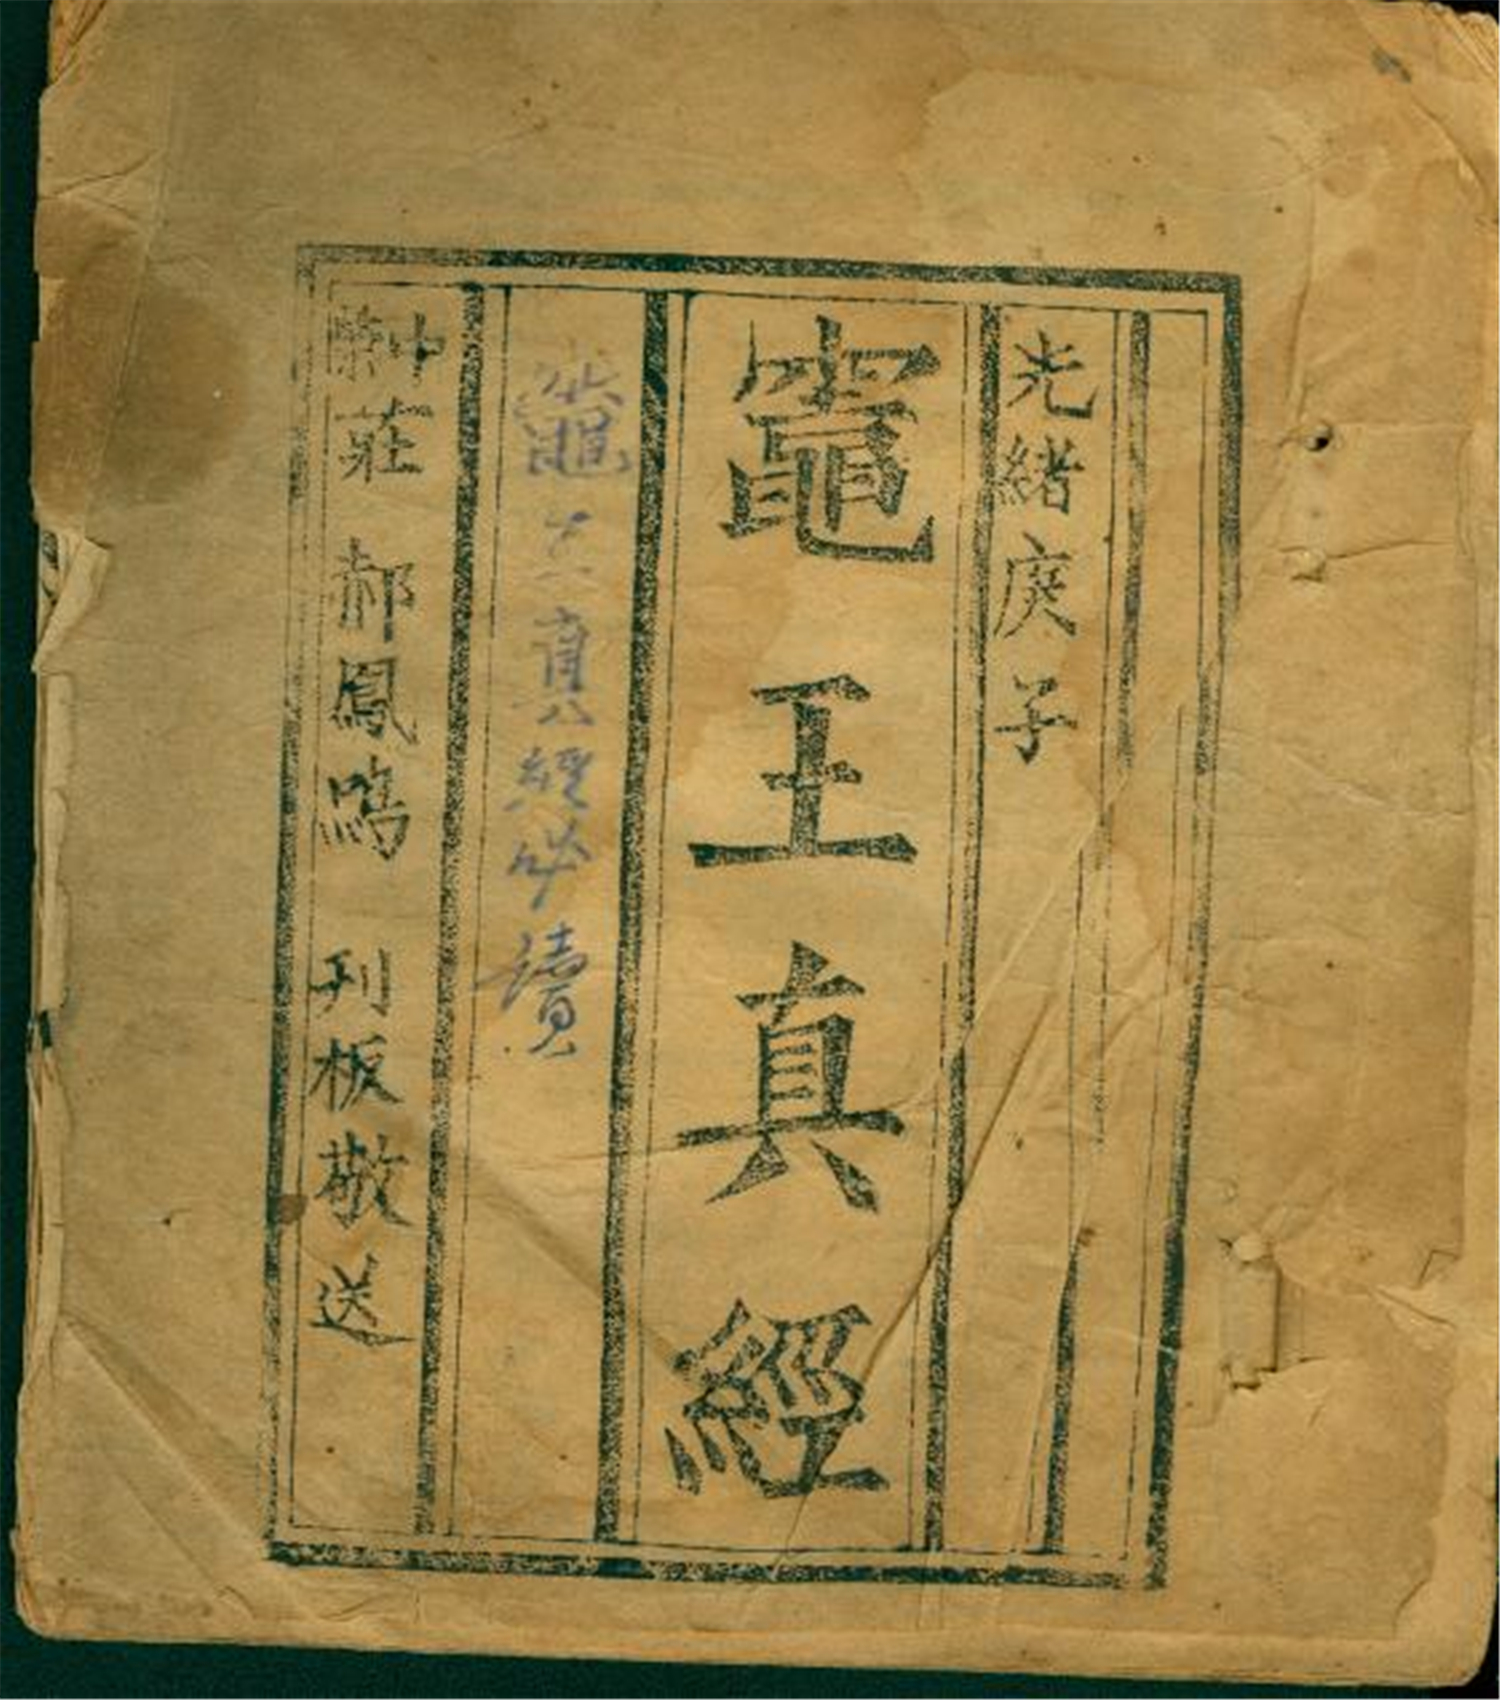 光緒庚子
竈王真經
竈王真經必讀
中莊 郝鳳鳴 刊板敬送